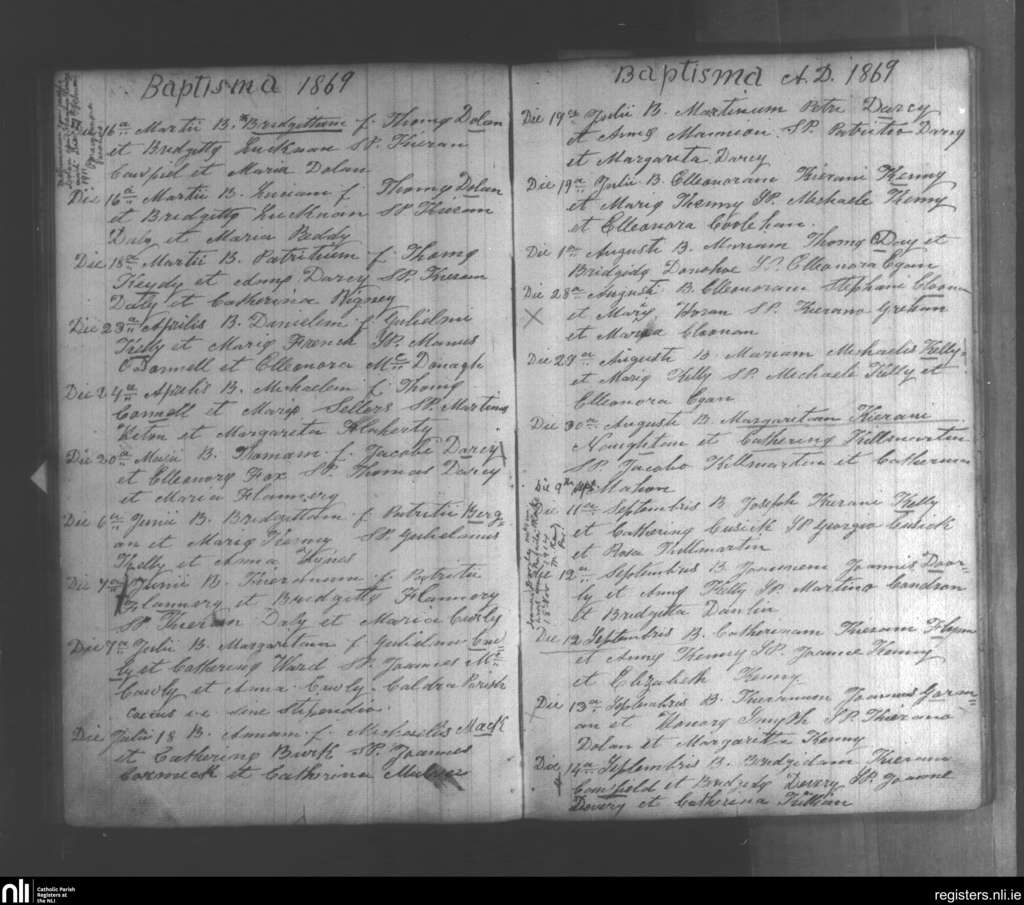 Baptisma 1869
Die 16a Martii B. Bridgittam f Thomę Dolan
et Bridgittę Luckuan SP. Kieran
et Maria Dolan
Die 16a Martii B. f Thomę Dolan
et Bridgittę Luckuan SP Kieran
Daly et Maria Reddy
Die 18a Martii B. Patritium f Thomę
et Annę Darcy SP. Kieran
Daly et Catherina Rigney
Die 23a Aprilis B. Danielem f Gulielmi
Kelly et Marię French SP. Manus
O'Donnell et Elleonora McDonagh
Die 24a Aprilis B. Michaelem f Thomę
Connell et Marię Sellers SP. Martinus
et Margareta Flaherty
Die 20a Maii B. Thomam f Jacobi Darcy
et Elleonorę Fox SP Thomas Darcy
et Maria Flannery
Die 6a Junii B. Bridgittam f Patritii Berg
an et Marię Tierney SP. Gulielmus
Kelly et Anna Hynes
Die 7a Junii B. Kieranum f Patritii
Flannery et Bridgittę Flannery
SP Kieran Daly et Maria Curly
Die 7a Julii B. Margaritam f Gulielmi Cur
ly et Catherinę Ward SP. Joannes Mc
Cawly et Anna Cawly. Caldra Parish
i.e. sine stipendio.
Die Julii 18 B. Annam f Michaelis Mack
et Catherinę Burk SP. Joannes
Cormick et Catherina
Baptisma A.D. 1869
Die 19a Julii B. Martinum Petri Darcy
et Annę Mannion SP. Patritio Darcy
et Margarita Darcy
Die 19a Julii B. Elleonoram Kierani Kenny
et Marię Kenny SP. Michaele Kenny
et Elleonora Coolehan.
Die 1a Augusti B. Mariam Thomę Day et
Bridgidę Donohoe SP. Elleonora Egan
Die 28a Augusti B. Elleonoram Stephani Cloonan
et Marię Horan SP. Kierano Greham
et Maria Cloonan
Die 29a Augusti B Mariam Michaelis Kelly
et Marię Kelly SP. Michaele Kelly et
Elleonora Egan
Die 30a Augusti B Margaritam Kierani
Naughton et Catherinę Killmartin
SP. Jacobo Killmartin et Catherina
Die 9a Mahon
Die 11a Septembris B Joseph Kierani Kelly
et Catherinę Cusick SP Georgio Cusick
et Rosa Killmartin
Die 12a Septembris B Joannem Joannis Door
ly et Annę Kelly SP. Martino Condron
et Bridgitta Danlin
Die 12 Septembris B. Catherinam Kierani Flynn
et Annę Kenny SP. Joanne Kenny
et Elizabeth Kenny
Die 13a Septembris B. Kieranum Joannis Gorm
an et Honorę Smyth SP. Kierano
Dolan et Margarita Kenny
Die 14a Septembris B. Bridgidam Kierani
et Bridgidę Devery SP. Joanne
Devery et Catherina Killian
nli
Catholic Parish
Registers at
the NLI
registers.nli.ie